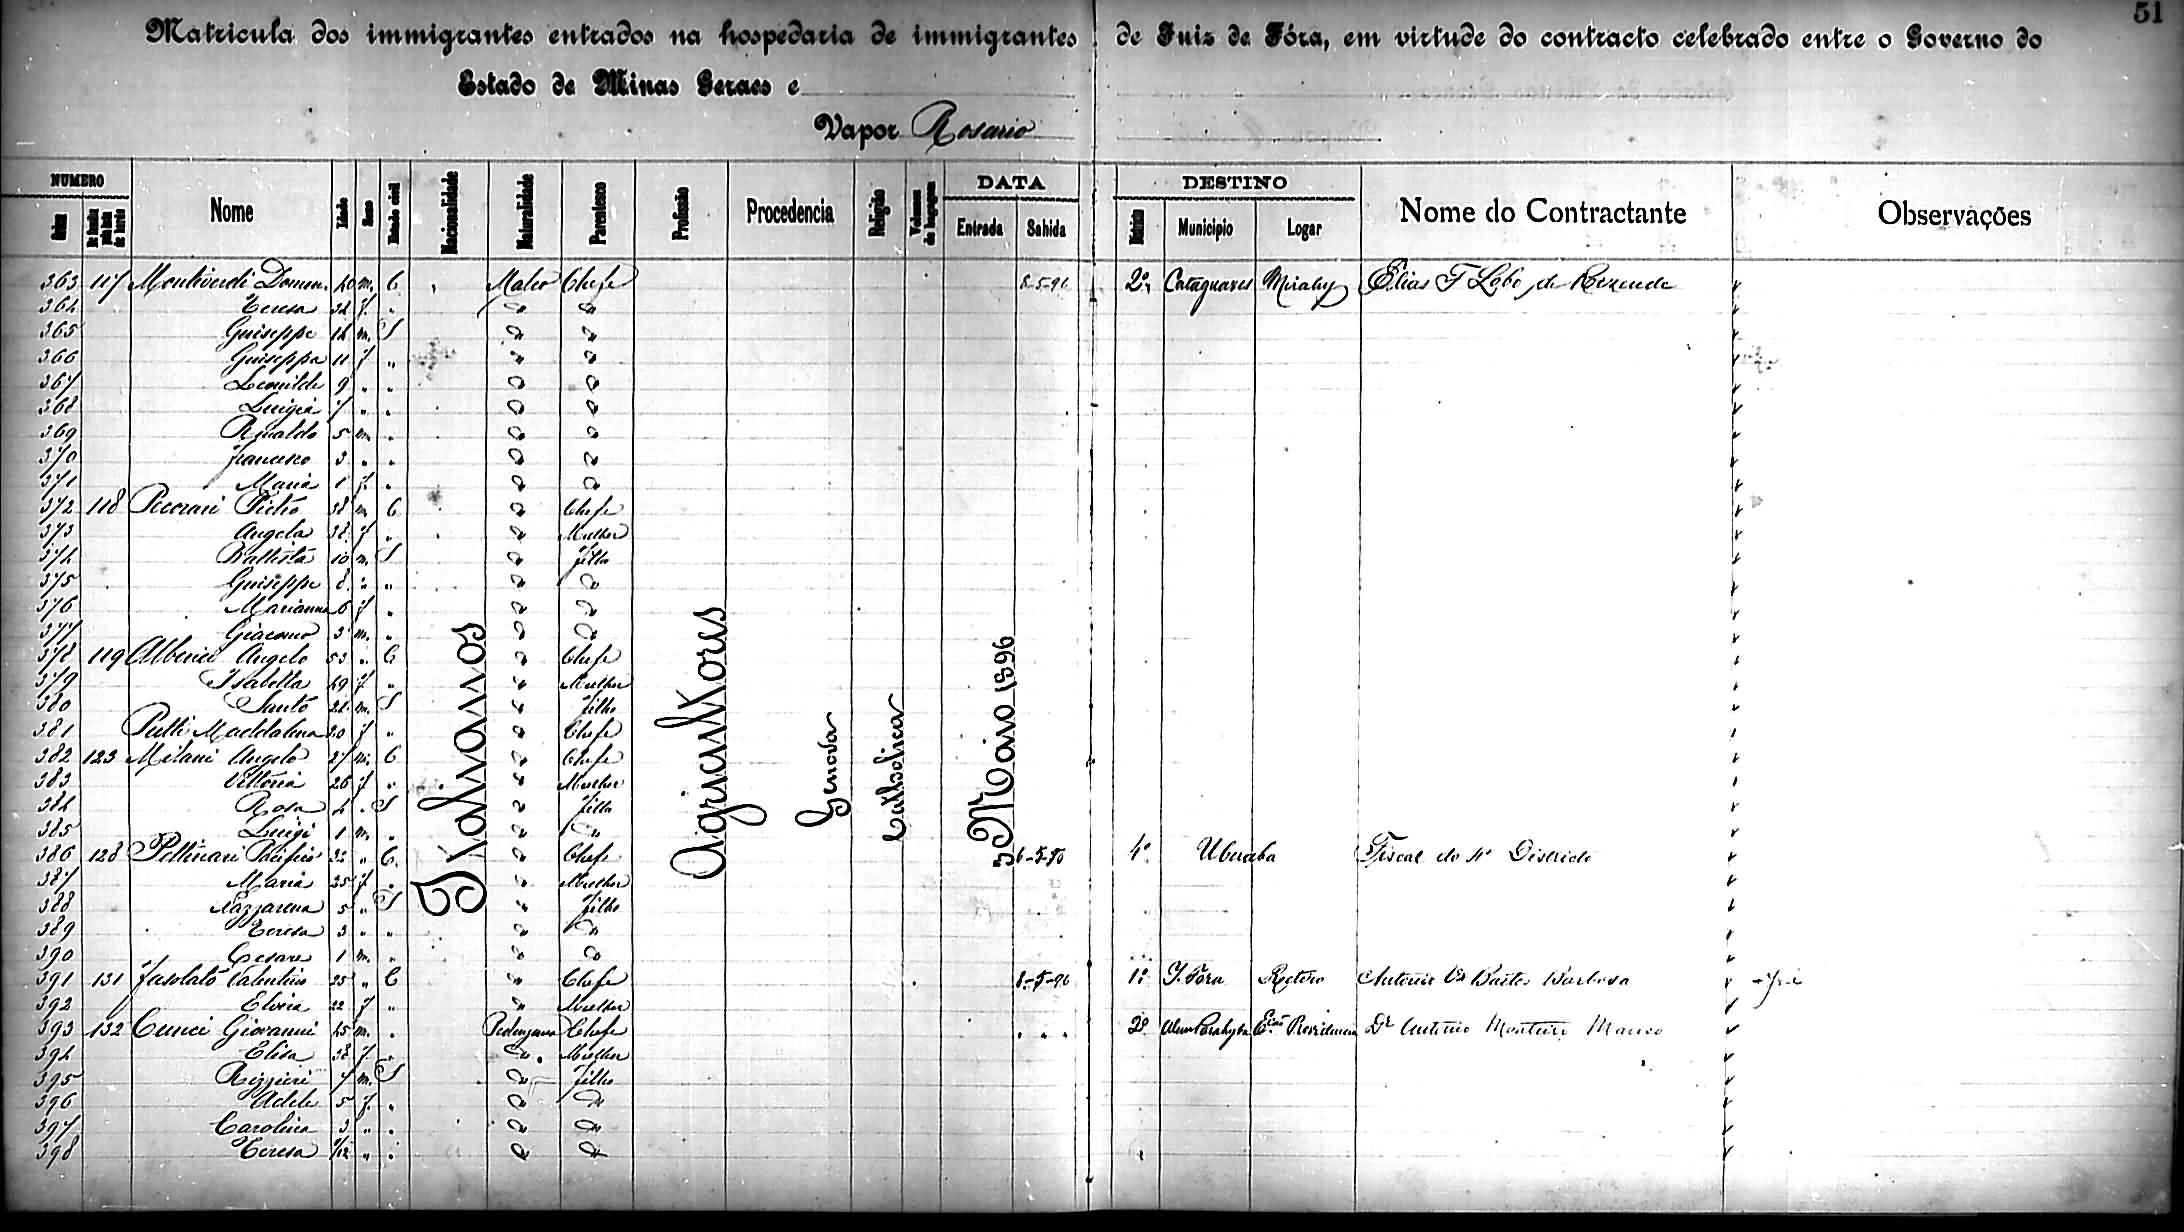 51
Matricula dos immigrantes entrados na hospedaria de immigrantes de Juiz de Fóra, em virtude do contracto celebrado entre o Governo do
Estado de Minas Geraes e
Vapor Rosario
NUMERO DATA DESTINO
Ordem De familia pela lista de bordo Nome Idade Sexo Estado civil Nacionalidade Naturalidade Parentesco Profissão Procedencia Religião Volumes de bagagem Entrada Sahida Districto Municipio Logar Nome do Contractante Observações
363 117 Montiverdi Domen. 40 m. C Chefe 8-5-96 2º Cataguases Mirahy Elias F Lobo de Rezende
364 Teresa f. "
365 Guiseppe m. S
366 Guiseppa 11 f "
367 Leonilde 9 " "
368 Luigia 7 " "
369 Rinaldo 5 m. "
370 Francesco 3 " "
371 Maria 1 f. "
372 118 Pietro 38 m C Chefe
373 Angela 38 f " Mulher
374 Battista 10 m. S filho
375 Guiseppe 8 " "
376 Marianna 6 f "
377 Giacomo 3 m. "
378 119 Alberici Angelo 53 " C Chefe
379 Isabella 49 f " Mulher
380 Santo m. S filho
381 Putti Maddalena 20 f " Chefe
382 123 Milani Angelo 27 m. C Chefe
383 Vittoria 26 f " Mulher
384 Rosa 4 " S filha
385 Luigi 1 m. "
386 128 Pettinari Pacifico 32 " C. Chefe 6-5-96 4º Uberaba Fiscal do 4º Districto
387 Maria 25 f " Mulher
388 Nazzarena 5 " S filho
389 Teresa 3 " "
390 Cesare 1 m. "
391 131 Fasolato Valentino 25 " C Chefe 8-5-96 1º J. Fora Retiro Antonio Bastos Barbosa
392 Elvira 22 f " Mulher
393 132 Cunici Giovanni 45 m. " Chefe " " " 2º Alem Parahyba Providencia Dr Antonio Monteiro
394 Elisa 38 f. " Mulher
395 Rizzieri 7 m. S filho
396 Adele 5 f. "
397 Carolina 3 " "
398 Teresa "  "
Italianos
Agricultores
Genova
Catholica
5 Maio 1896